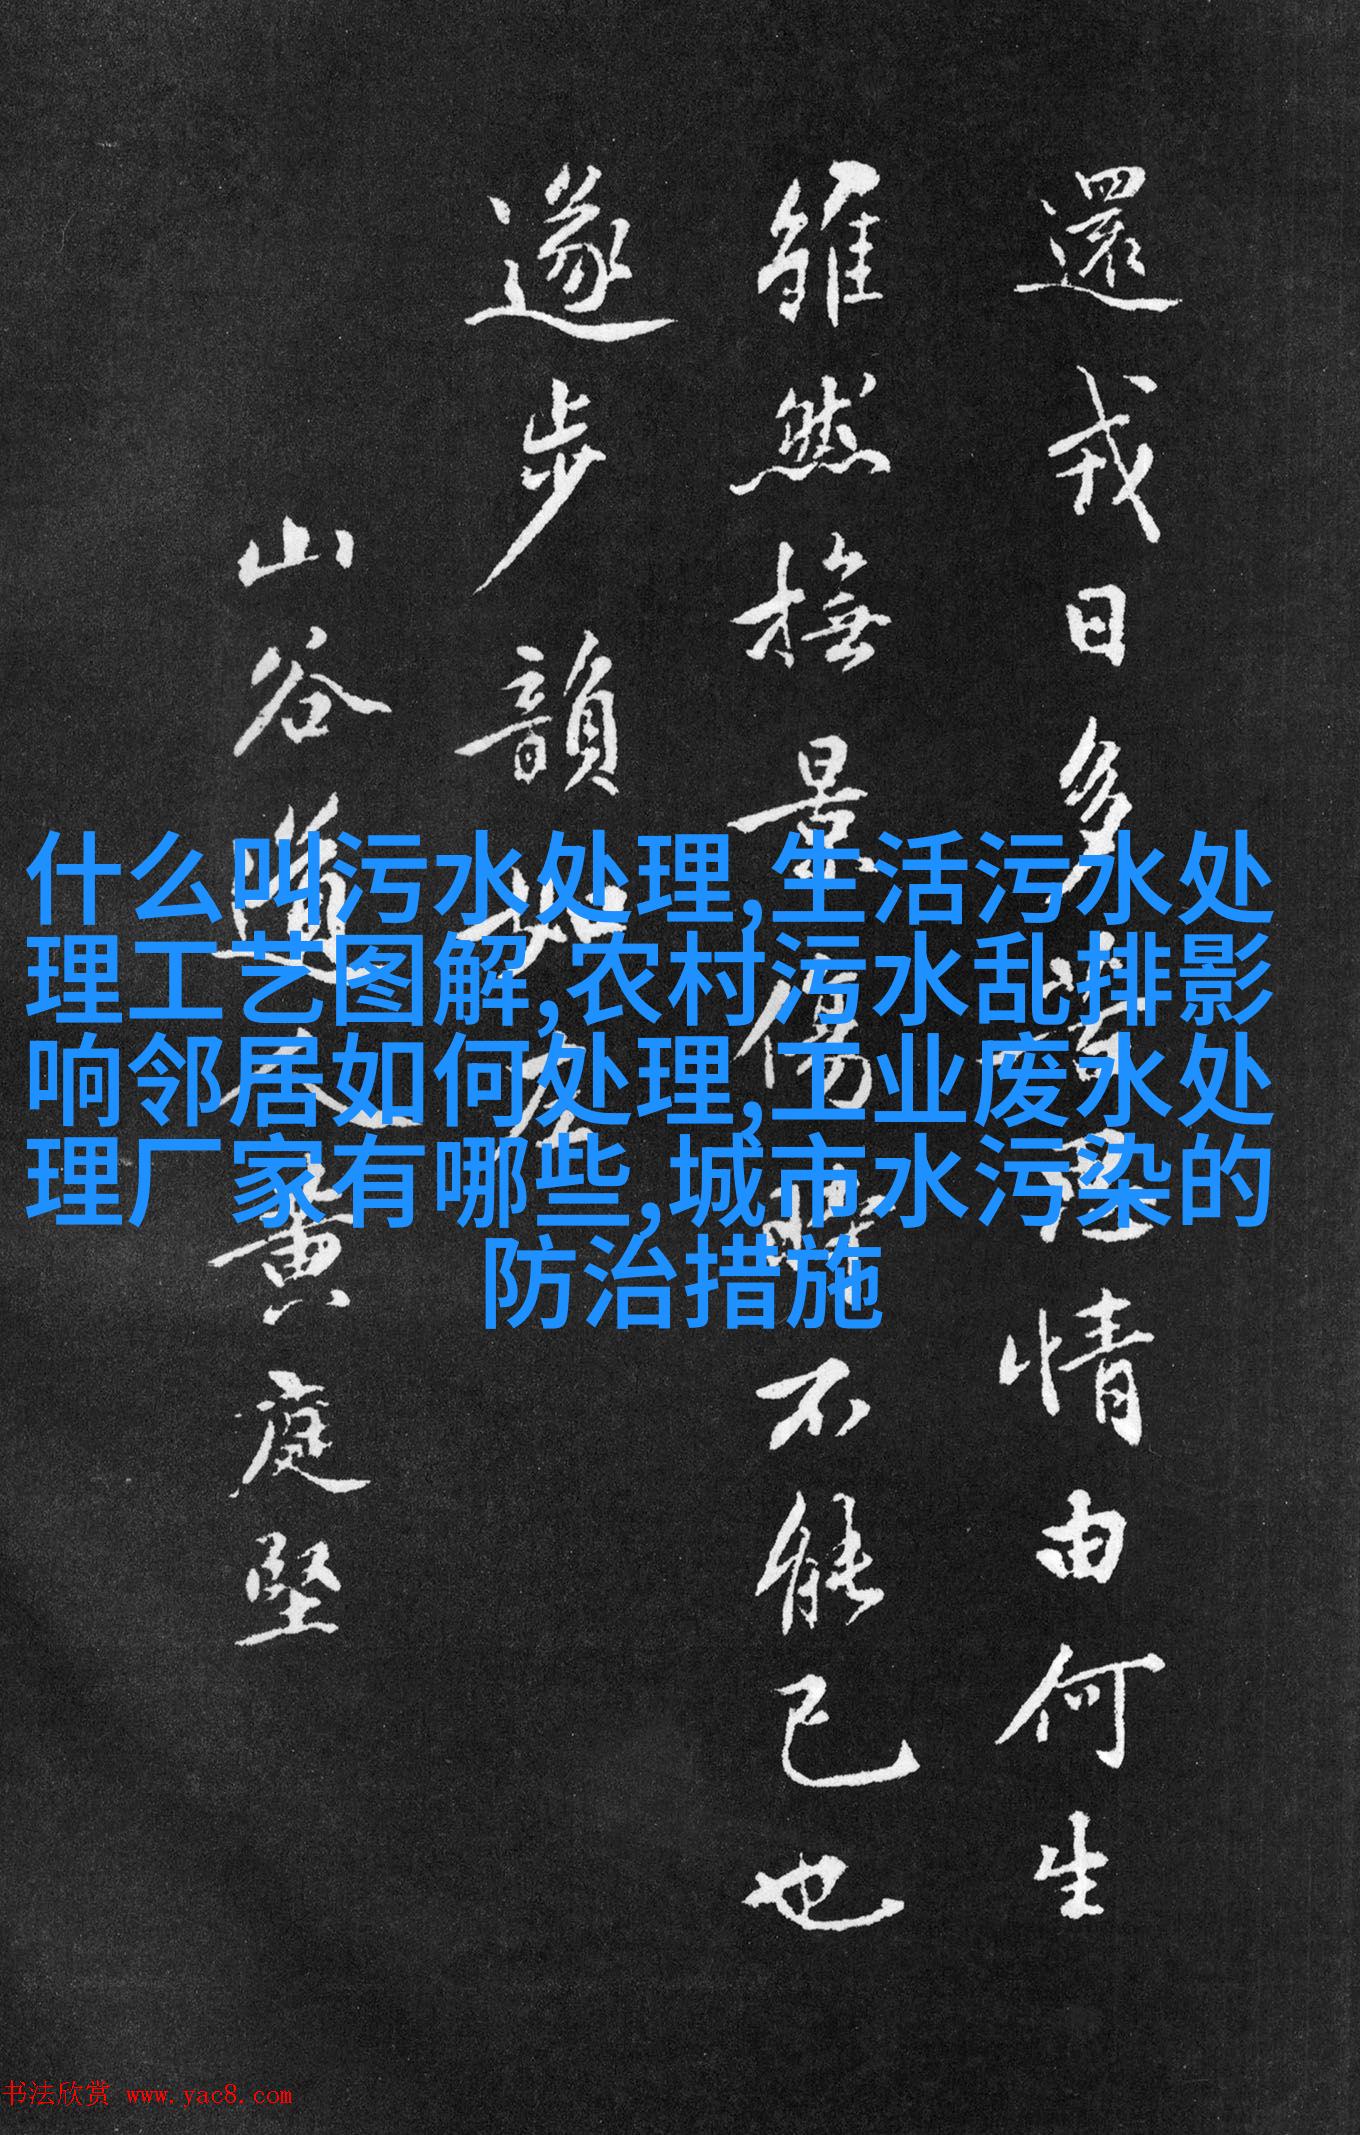 還我日多皆思情由何生
雖然撫景傷時不能已也
遂步韻如左
山谷道人黄庭堅
什么叫污水处理,生活污水处
理工艺图解,农村污水乱排影
响邻居如何处理,工业废水处
理厂家有哪些,城市水污染的
防治措施
书法欣赏 www.yac8.com